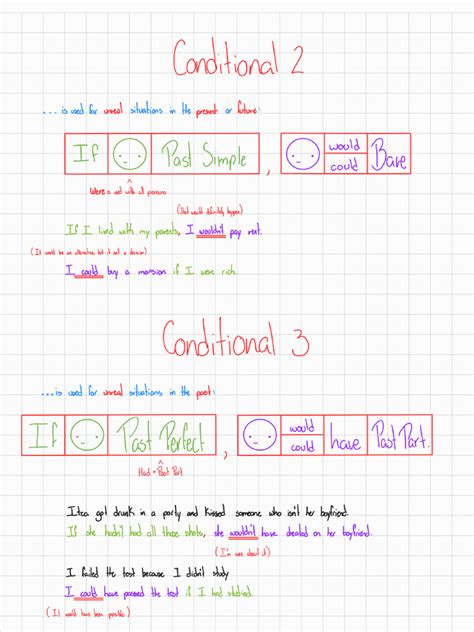 Conditional 2
... is used for unreal situations in the present or future:
If Past Simple , would could Bare
Were is used with all pronouns
(that would definitely happen)
If I lived with my parents, I wouldn't pay rent.
(It would be an alternative, but it isn't a decision)
I could buy a mansion if I were rich.
Conditional 3
... is used for unreal situations in the past:
If Past Perfect , would could have Past Part.
Had + Past Part
Itza got drunk in a party and kissed someone who isn't her boyfriend.
If she hadn't had all those shots, she wouldn't have cheated on her boyfriend.
(I'm sure about it)
I failed the test because I didn't study
I could have passed the test if I had studied.
(It would have been possible)